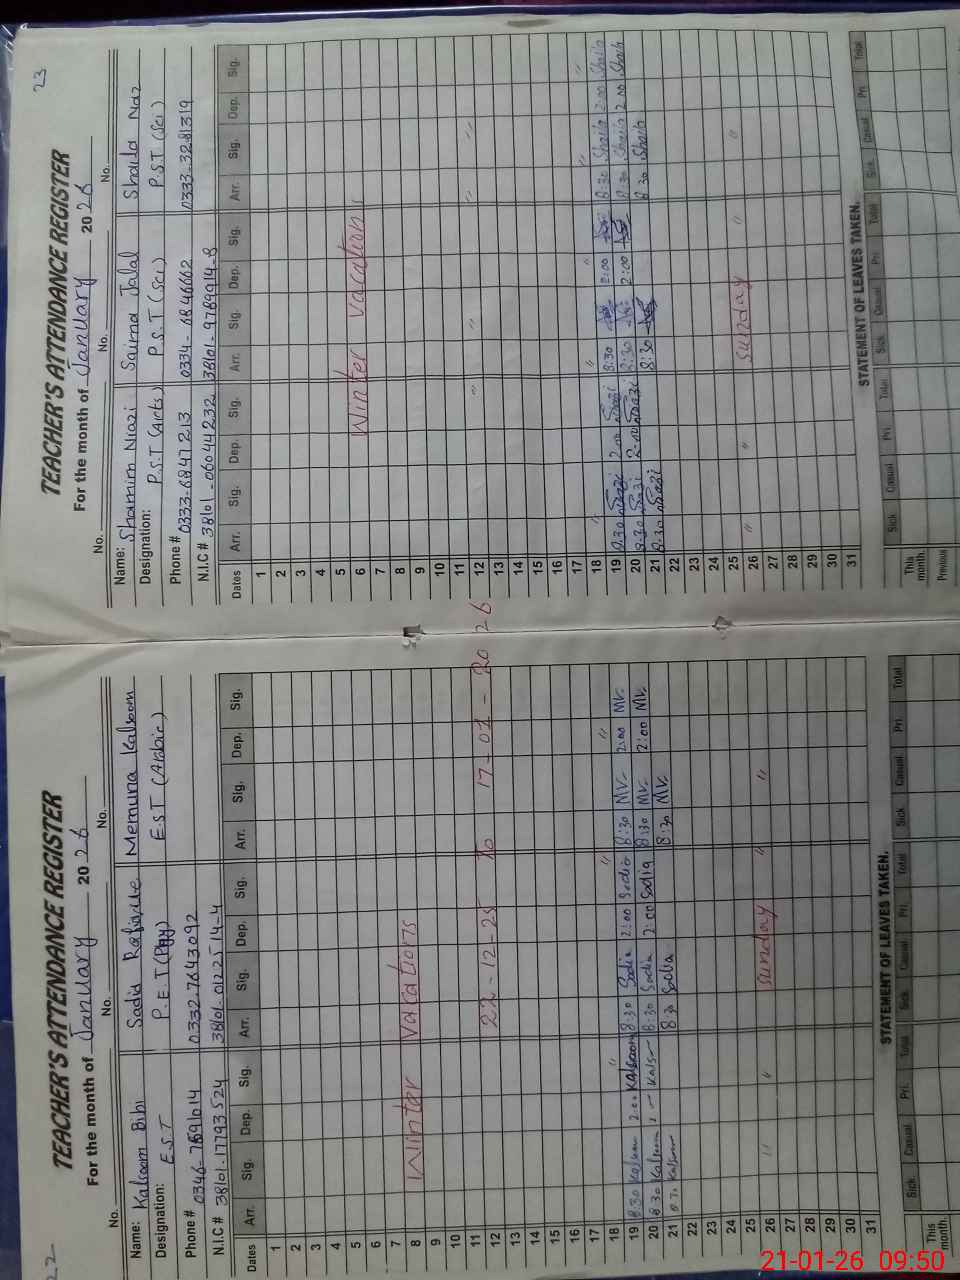 22
TEACHER'S ATTENDANCE REGISTER
For the month of January 2026
No. No. No.
Name: Kalsoom Bibi Sadia Rafique Memuna Kalsoom
Designation: E.S.T P.E.T (Phy) E.S.T (Arabic)
Phone # 0346-7691014 0332-7643092
N.I.C # 38101-1779352 4 38101-0122514-4
Dates Arr. Sig. Dep. Sig. Arr. Sig. Dep. Sig. Arr. Sig. Dep. Sig.
1
2
3
4
5
6
7
8 Winter Vacations
9
10
11
12 22-12-25 To 17-01-2026
13
14
15
16
17
18 " " "
19 8:30 Kalsoom 2:00 Kalsoom 8:30 Sadia 2:00 Sadia 8:30 MK 2:00 MK
20 8:30 Kalsoom 8:30 Sadia 2:00 Sadia 8:30 MK 2:00 MK
21 8:30 Kalsoom 8:30 Sadia 8:30 MK
22
23
24
25
26 " " sunday " "
27
28
29
30
31
STATEMENT OF LEAVES TAKEN.
Sick Casual Pri. Total Sick Casual Pri. Total Sick Casual Pri. Total
This month.
23
TEACHER'S ATTENDANCE REGISTER
For the month of January 2026
No. No. No.
Name: Shamim Niazi Saima Jalal Shaila Naz
Designation: P.S.T (Arts) P.S.T (Sci) P.S.T (Sci)
Phone # 0333-6847213 0334-6846662 0333-3281319
N.I.C # 38101-0604423 2 38101-9789914-8
Dates Arr. Sig. Dep. Sig. Arr. Sig. Dep. Sig. Arr. Sig. Dep. Sig.
1
2
3
4
5
6 Winter Vacations
7
8
9
10
11
12 " " " "
13
14
15
16
17
18 " " " " "
19 8:30 Niazi 2:00 Niazi 8:30 2:00 8:30 Shaila 2:00 Shaila
20 8:30 Niazi 2:00 Niazi 8:30 2:00 8:30 Shaila 2:00 Shaila
21 8:30 Niazi 8:30 8:30 Shaila
22
23
24
25
26 " " sunday " "
27
28
29
30
31
STATEMENT OF LEAVES TAKEN.
Sick Casual Pri. Total Sick Casual Pri Total Sick Casual Pri Total
This month.
Previous
21-01-26 09:50